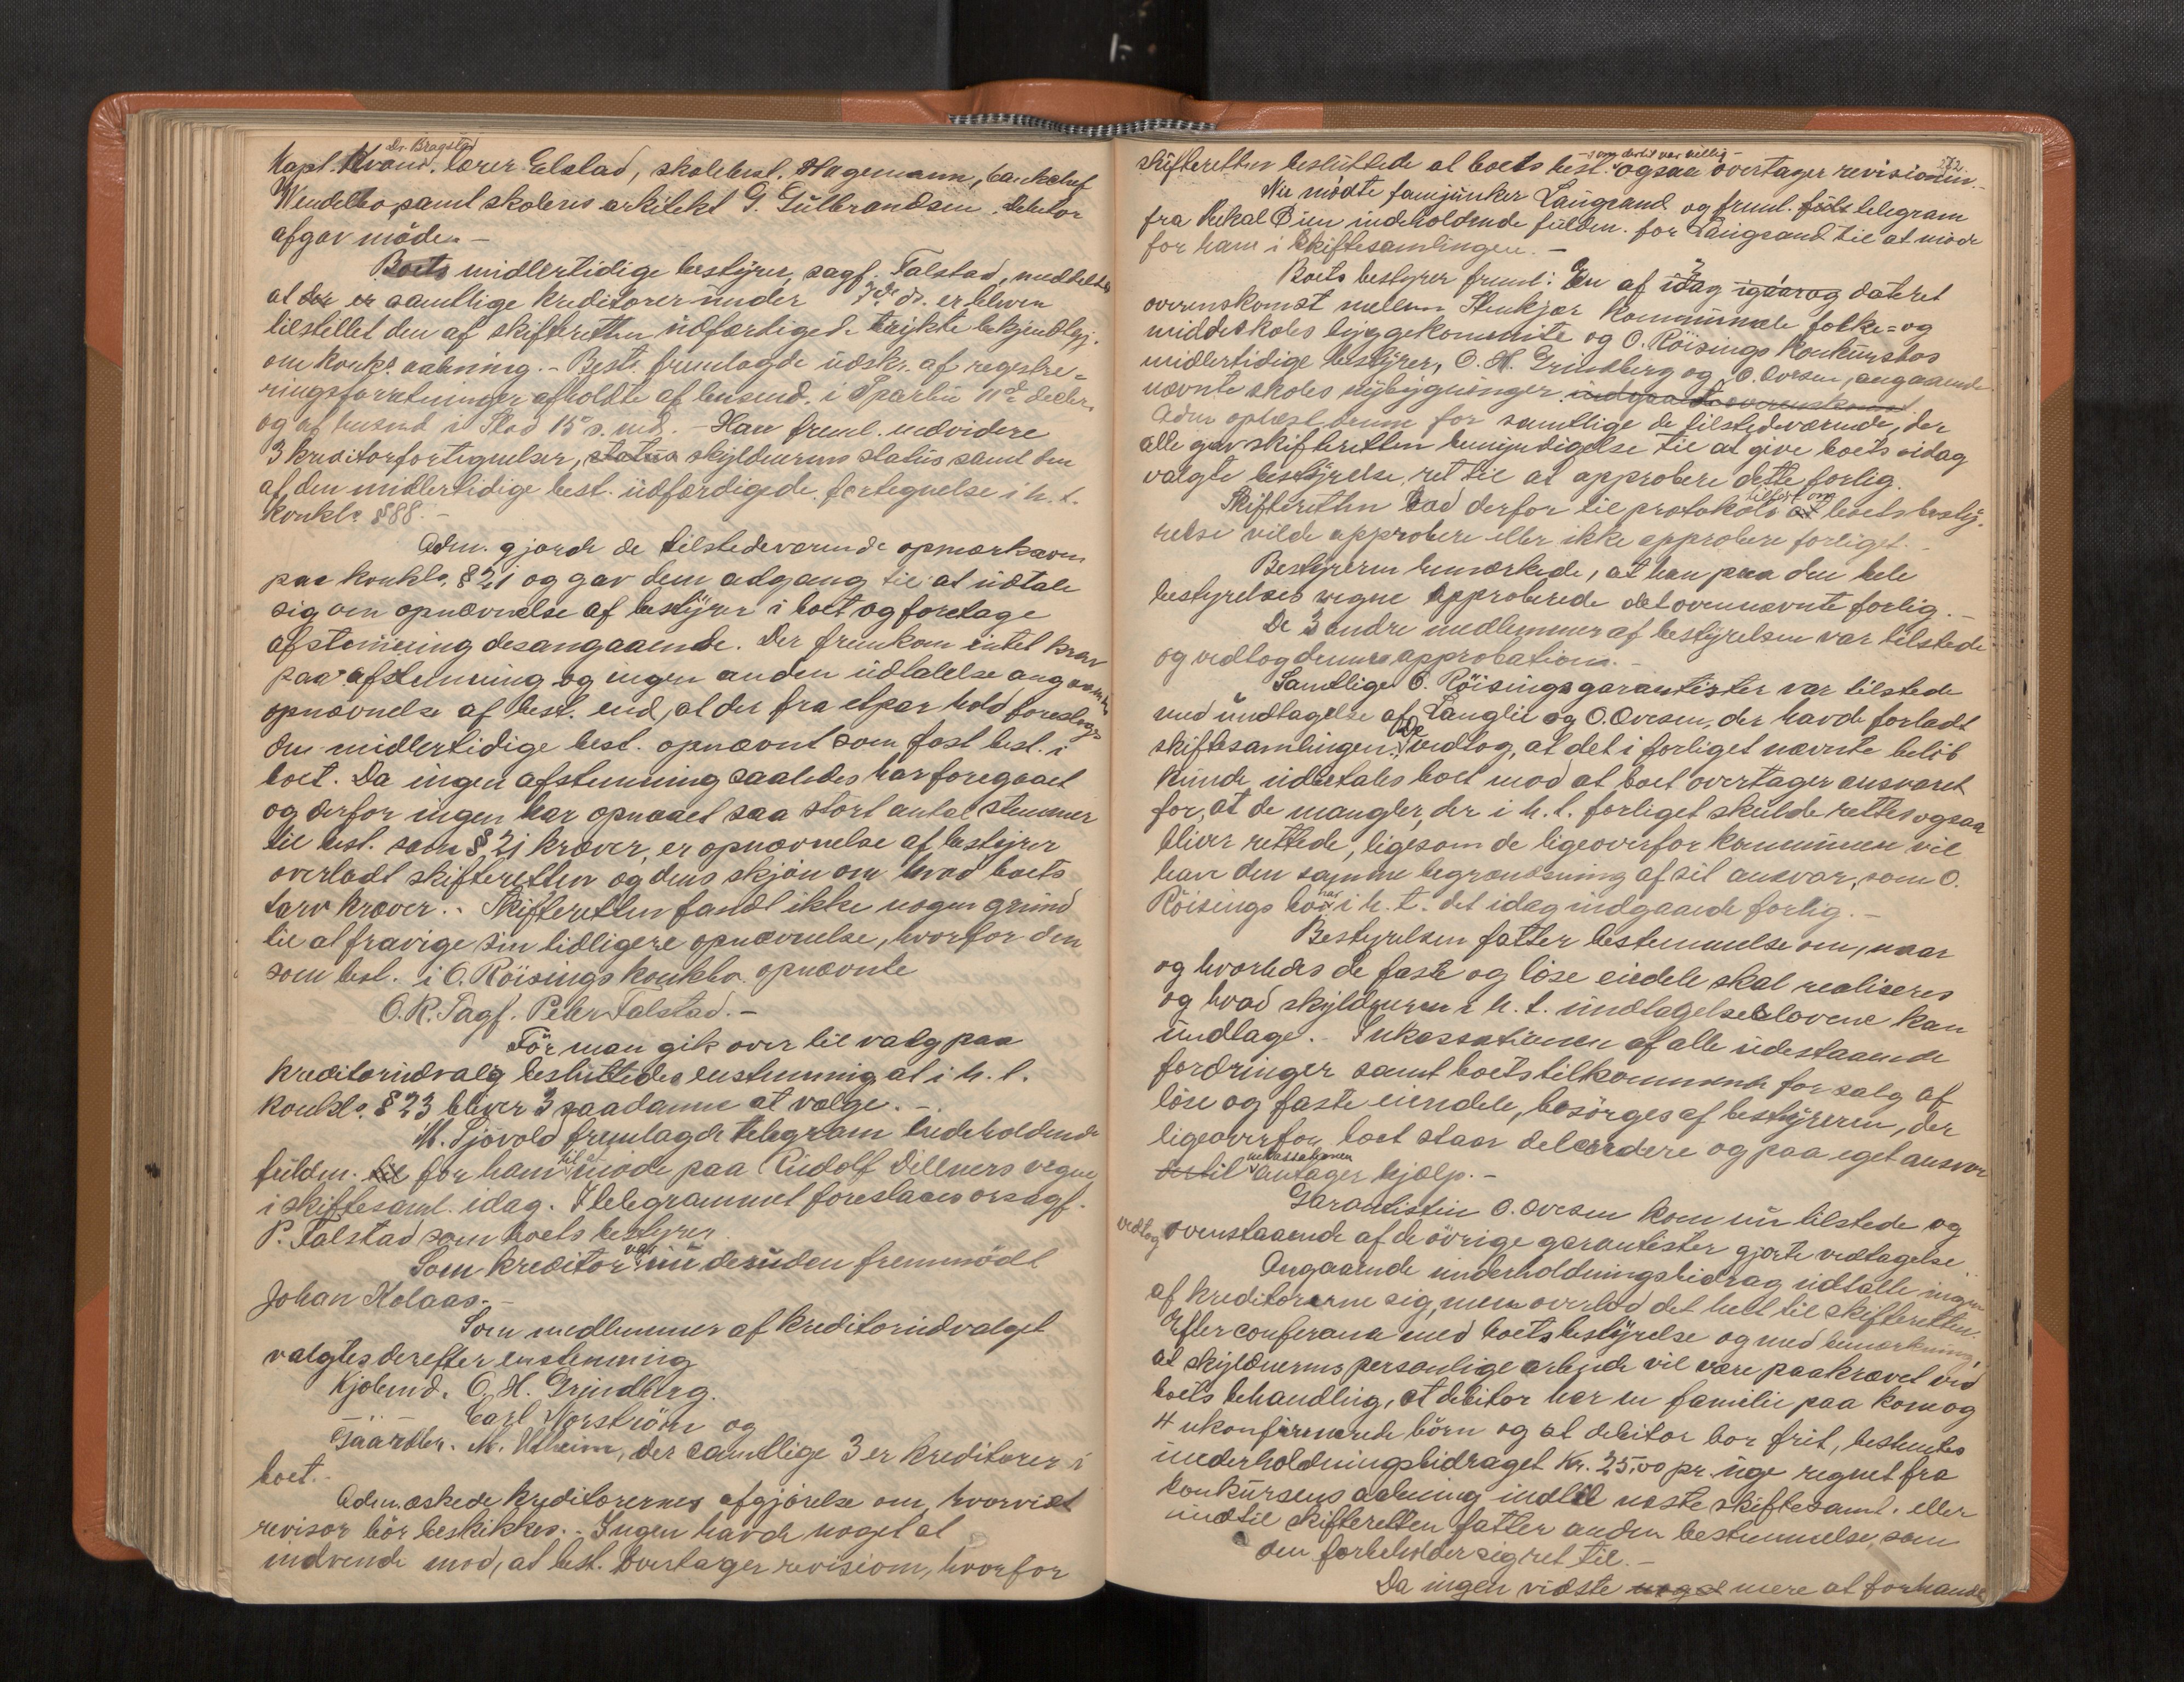 Dr. Bragstad
Kapt. Kvam. lærer Elstad, skolebest. Hagemann, bankchef
Wendelbo samt skolens arkitekt G. Gulbrandsen. Debitor
afgav møde. -
Boets midlertidige bestyrer, sagf. Falstad, meddelte
at der er samtlige kreditorer under 7de ds. er bleven
tilstillet den af skifteretten udfærtigede trykte bekjendtgj.
om konks. aabning. - Best. fremlagde udskr. af registre=
ringsforretninger afholdte af lensmd. i Sparbu 11te decbr.
og af lensmd. i Stod 15 s. md. - Han freml. endvidere
3 kreditorfortegnelser, status skyldnerens status samt den
af den midlertidige best. udfærdigede fortegnelse i h. t.
konkl. § 88. -
Adm. gjorde de tilstedeværende opmerksom
paa konkl. § 21 og gav dem adgang til at udtale
sig om opnævnelse af bestyrer i boet og foretage
afstemning desangaaende. Der fremkom intet krav
paa afstemning og ingen anden udtalelse angaaende
opnævnelse af best. end, at der fra etpar hold foreslages
den midlertidige best. opnævnt som fast best. i
boet. Da ingen afstemning saaledes har foregaaet
og derfor ingen har opnaaet saa stort antal stemmer
til best. som § 21 kræver, er opnævnelse af bestyrer
overladt skifteretten og dens skjøn om hvad boets
tarv kræver. - Skifteretten fandt ikke nogen grund
til at fravige sin tidligere opnævnelse, hvorfor den
som best. i O. Röisings konkbo. opnævnte
O.R. Sagf. Peter Falstad. -
Før man gik over til valg paa
kreditorudvalg besluttedes enstemmig at i h. t.
konkl. § 23 bliver 3 saadanne at vælge. -
M. Sjövold fremlagde telegram indeholdende
fuldm. til for ham til at møde paa Rudolf Dillners vegne
i skiftesaml. idag. I telegrammet foreslaaes orsagf.
P. Falstad som boets bestyrer.
Som kreditor var nu desuden fremmødt
Johan Kolaas. -
Som medlemmer af kreditorudvalget
valgtes derefter enstemmig
Kjøbmd. O. H. Grindberg.
-"- Carl Norström og
Gaardbr. M. Utheim, der samtlige 3 er kreditorer i
boet. -
Adm. æskede kreditorernes afgjørelse om, hvorvidt
revisor bør beskikkes. - Ingen havde noget at
indvende mod, at best. overtager revisionen, hvorfor
272.
- som dertil var villig -
skifteretten besluttede at boets best. ogsaa overtager revisionen. -
Nu mødte fanejunker Langsand og freml. telegram
fra Mekal Øien indeholdende fuldm. for Langsand til at møde
for ham i skiftesamlingen. -
Boets bestyrer freml: En af idag igaar og dateret
overenskomst mellem Stenkjær kommunale folke= og
middelskoles byggekomite og O. Röisings konkursbos
midlertidige bestyrer, O. H. Grindberg og O. Ovesen, angaaende
nævnte skoles nybygninger indgaaede overenskomst.
Adm. oplæste denne for samtlige de tilstedeværende, der
alle gav skifteretten bemyndigelse til at give boets idag
valgte bestyrelse ret til at approbere dette forlig.
Skifteretten bad derfor til protokols tilført om at boets besty-
relse vilde approbere eller ikke approbere forliget. -
Bestyreren bemærkede, at han paa den hele
bestyrelses vegne approberede det ovennævnte forlig. -
De 3 andre medlemmer af bestyrelsen var tilstede
og vedtog denne approbation. -
Samtlige O. Röisings garantister var tilstede
med undtagelse af Langlie og O. Ovesen, der havde forladt
skiftesamlingen. De vedtog, at det i forliget nævnte beløb
kunde udbetales boet mod at boet overtager ansvaret
for, at de mangler, der i h. t. forliget skulde rettes ogsaa
bliver rettede, ligesom de ligeoverfor kommunen vil
have den samme begrænsning af sit ansvar, som O.
Röisings bo har i h. t. det idag indgaaede forlig. -
Bestyrelsen fatter bestemmelse om, naar
og hvorledes de faste og løse eiendele skal realiseres
og hvad skyldneren i h. t. undtagelseslovene kan
undtage. - Inkassationen af alle udestaaende
fordringer samt boets tilkommende for salg af
løse og faste eiendele, besørges af bestyreren, der
ligeoverfor boet staar delcredere og paa eget ansvar
dertil inkassationen antager hjælp. -
Garantisten O. Ovesen kom nu tilstede og
vedtog ovenstaaende af de øvrige garantister gjorte vedtagelse. -
Angaaende underholdningsbidrag udtalte ingen
af kreditorerne sig, men overlod det helt til skifteretten.
Efter conferanse med boets bestyrelse og med bemærkning,
at skyldnerens personlige arbeide vil være paakrævet ved
boets behandling, at debitor har en familie paa kone og
4 ukonfirmerede børn og at debitor bor frit, bestemtes
underholdningsbidraget kr. 25,00 pr. uge regnet fra
konkursens aabning indtil næste skiftesaml. eller
indtil skifteretten fatter anden bestemmelse, som
den forbeholder sig ret til. -
Da ingen vidste noget mere at forhandle